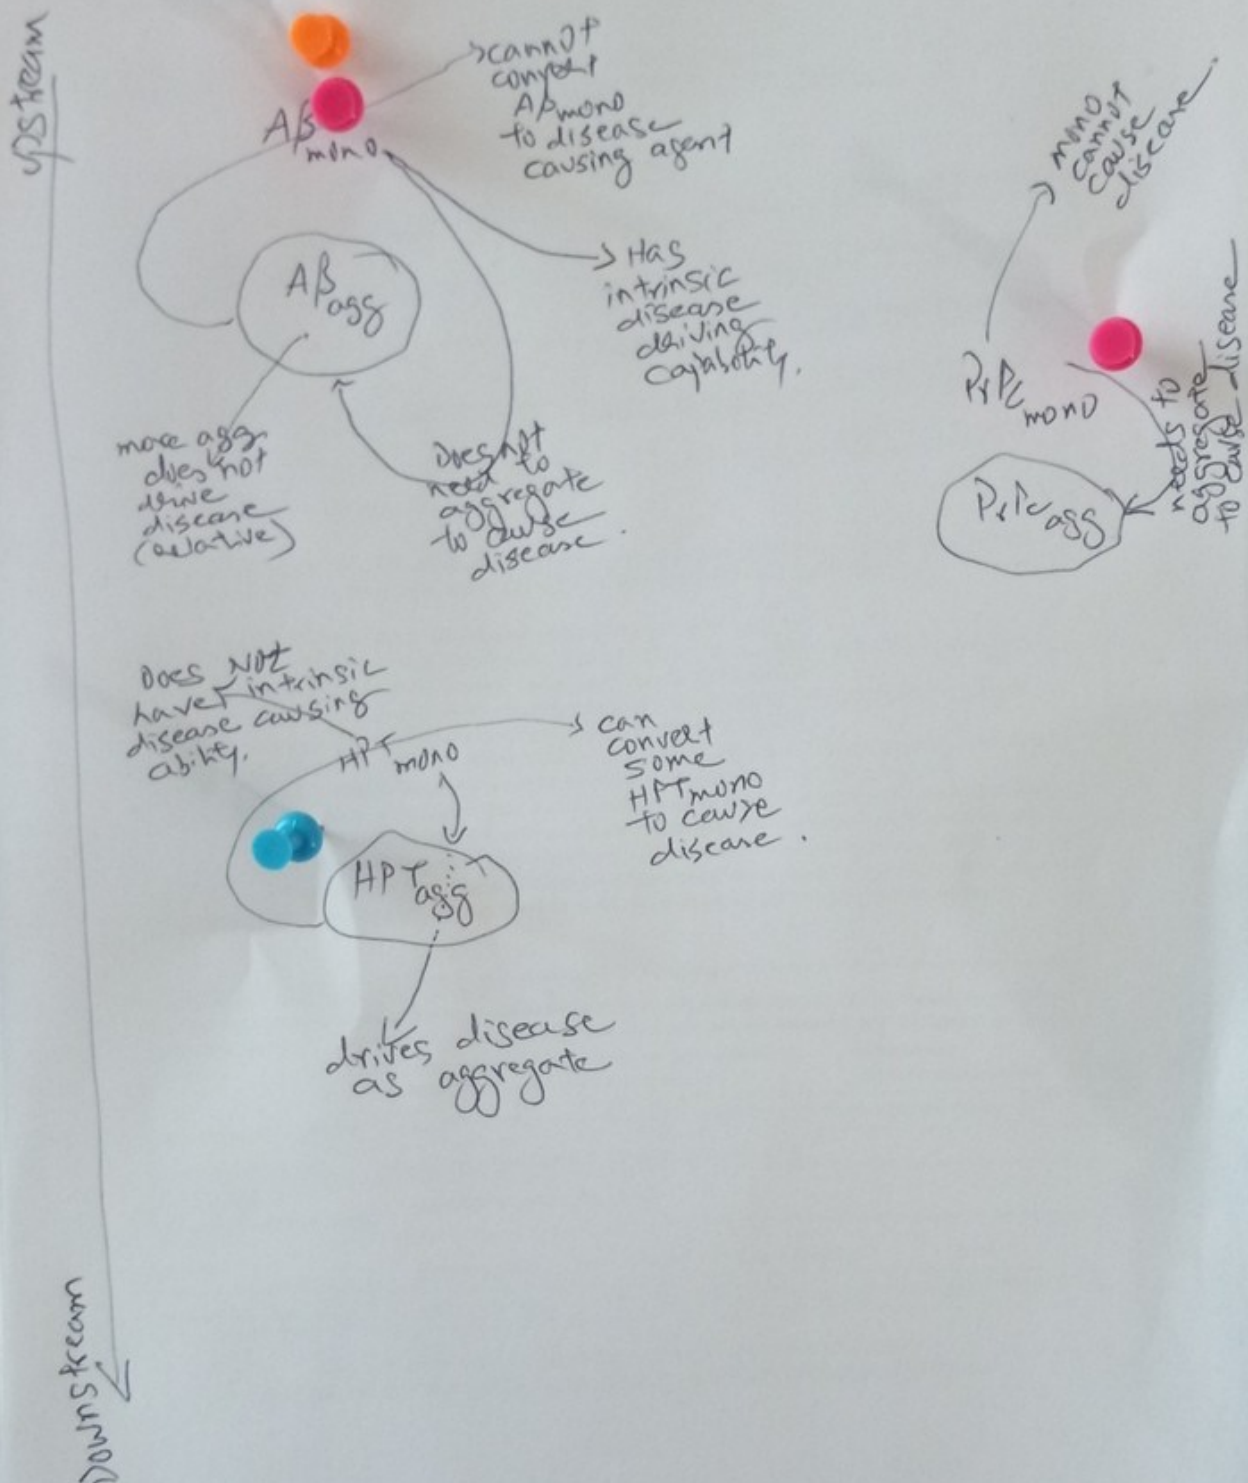 upstream
Aβmono
cannot
convert
Aβmono
to disease
causing agent
Aβagg
Has
intrinsic
disease
driving
capability.
more agg
does not
drive
disease
(relative)
Does not
need to
aggregate
to cause
disease.
mono
cannot
cause
disease.
PrPc mono
needs to
aggregate
to cause disease
PrPc agg
Does NOT
have intrinsic
disease causing
ability.
HPT mono
can
convert
some
HPTmono
to cause
disease.
HPT agg
drives disease
as aggregate
Downstream